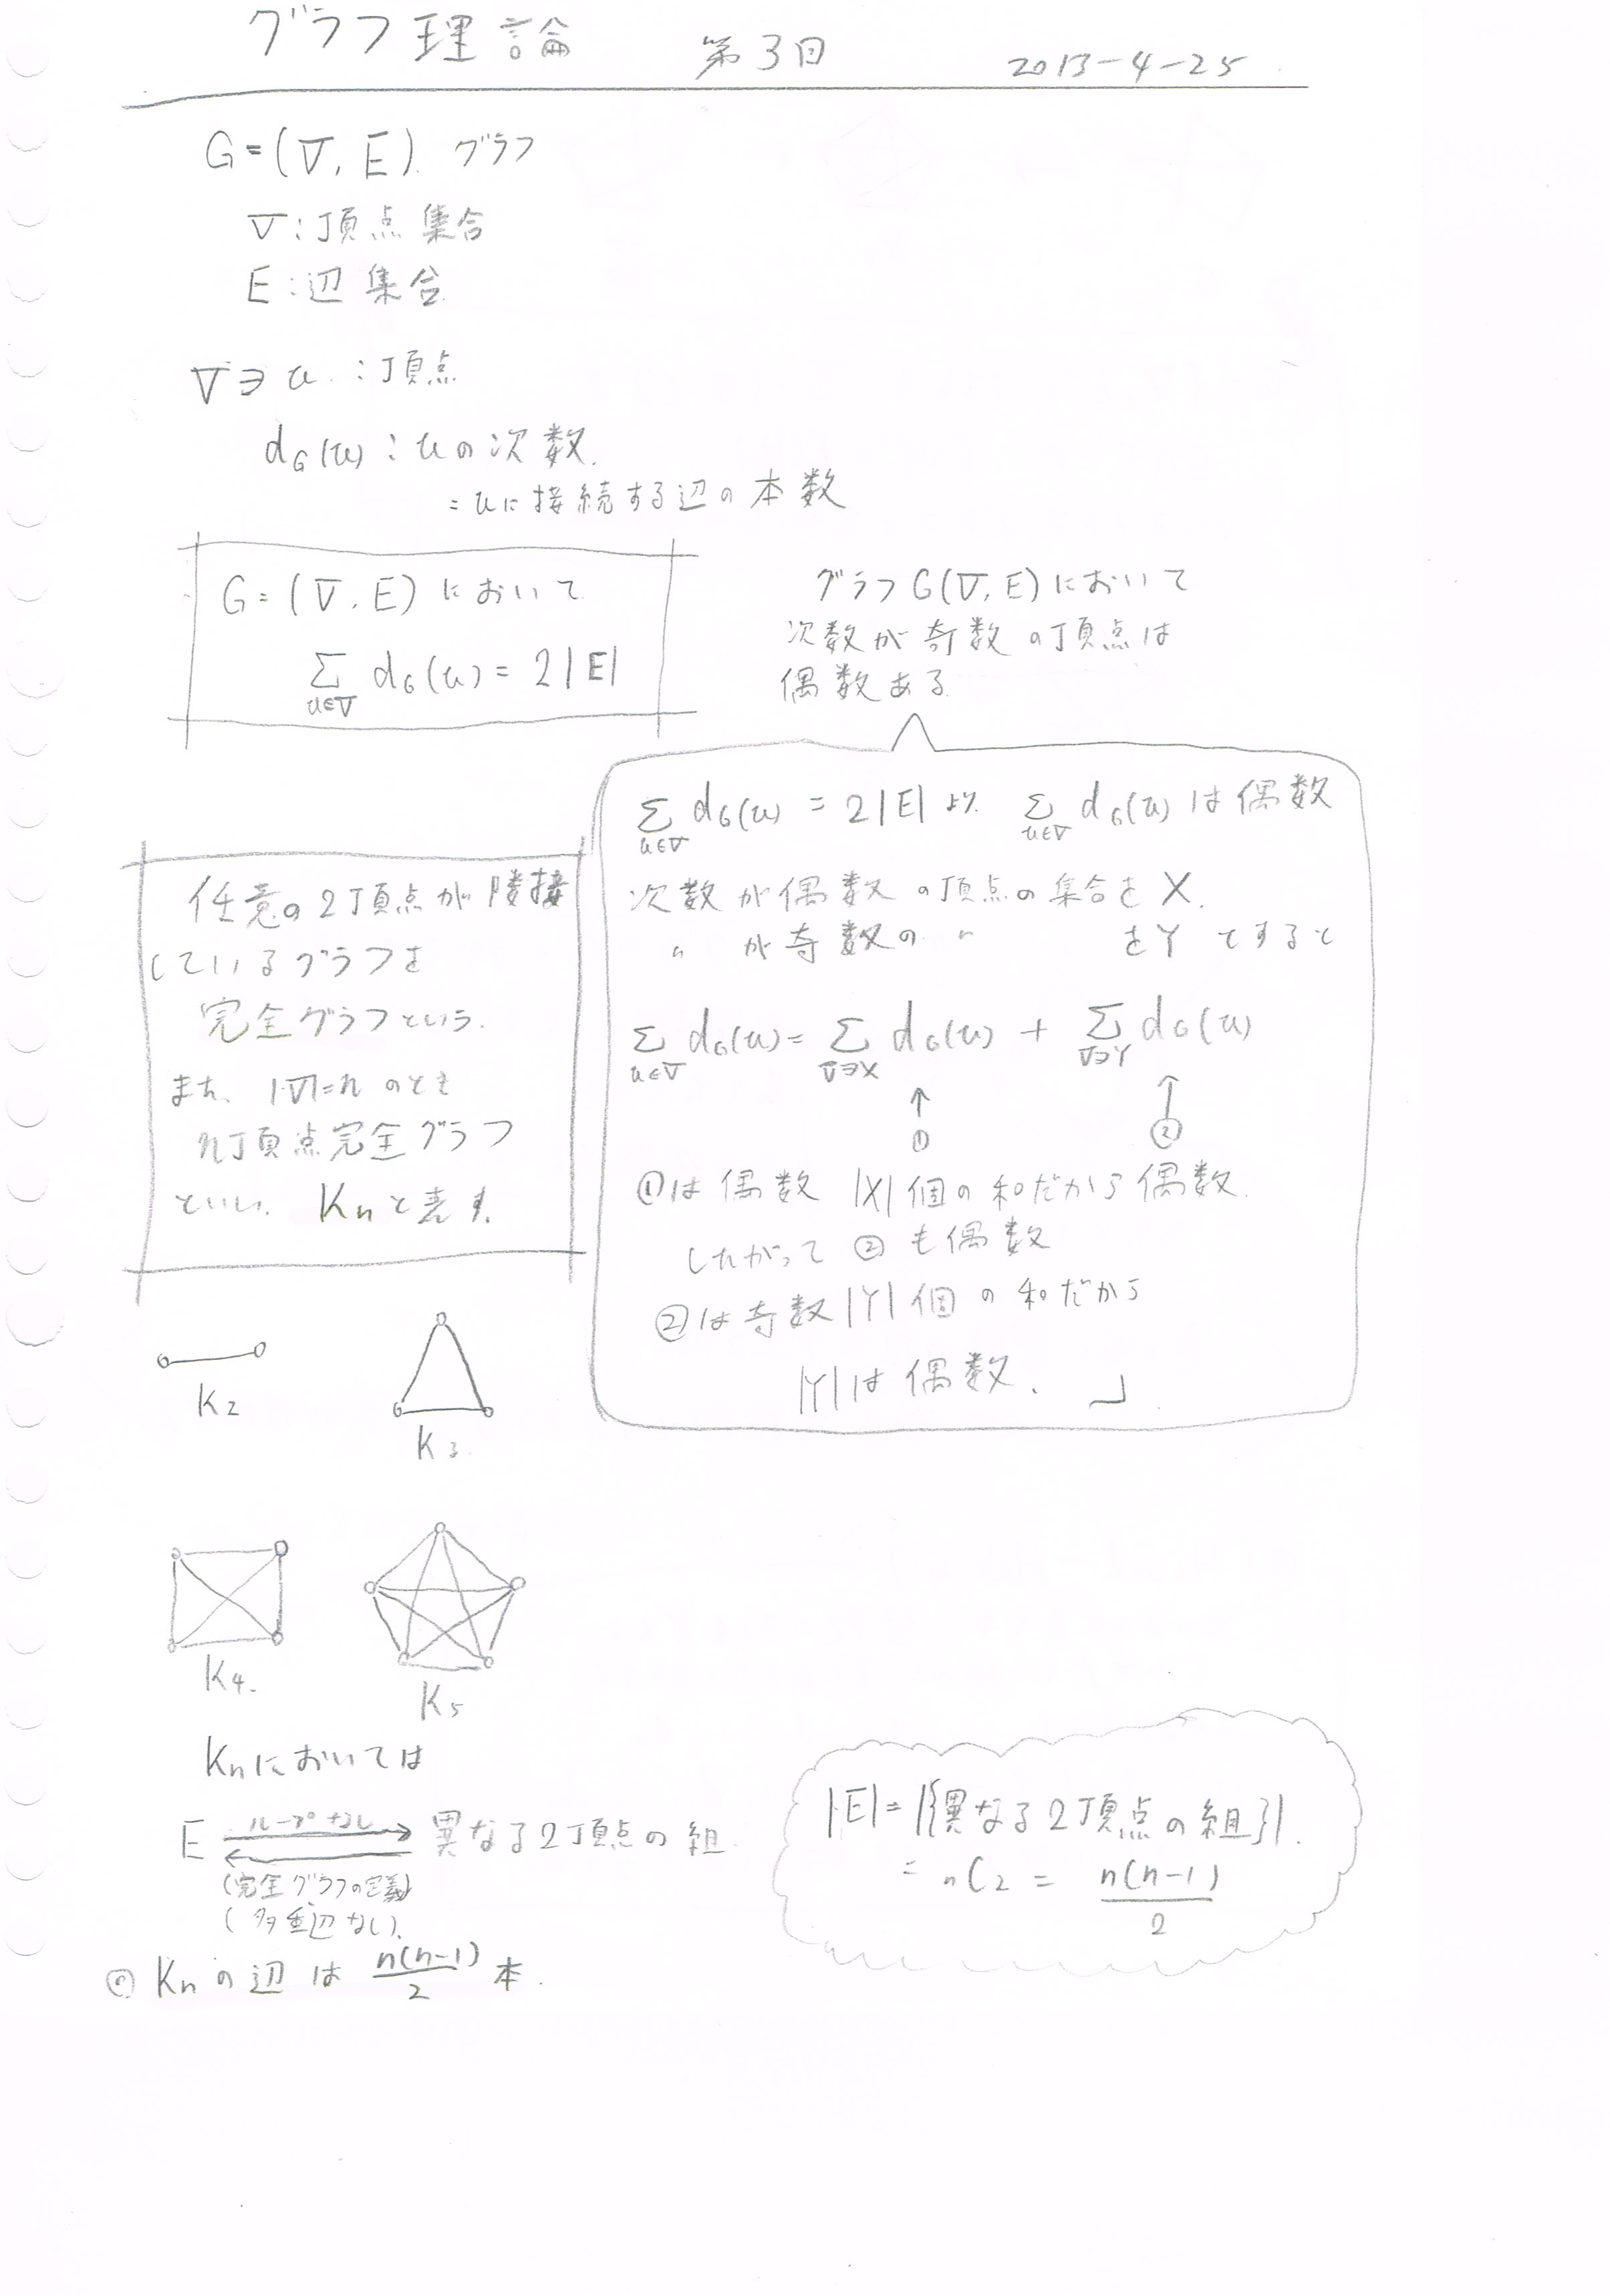 グラフ理論 第3回 2013-4-25
G=(V, E) グラフ
V:頂点集合
E:辺集合
V∋u :頂点
dG(u):uの次数.
=uに接続する辺の本数
G=(V, E)において
Σ dG(u)=2|E|
u∈V
グラフG(V, E)において
次数が奇数の頂点は
偶数ある
Σ dG(u) = 2|E|より Σ dG(u)は偶数
u∈V u∈V
次数が偶数の頂点の集合をX.
〃 が奇数の 〃 をYとすると
Σ dG(u)=Σ dG(u) + Σ dG(u)
u∈V V∋X V∋Y
↑ ↑
① ②
①は偶数|X|個の和だから偶数.
したがって②も偶数
②は奇数|Y|個の和だから
|Y|は偶数. 」
任意の2頂点が隣接
しているグラフを
完全グラフという.
また、|V|=nのとき
n頂点完全グラフ
といい. Knと表す.
K2
K3.
K4.
K5
Knにおいては
ループなし
E ⇄ 異なる2頂点の組.
(完全グラフの定義)
(多重辺なし).
|E|=|{異なる2頂点の組}|.
= nC2 = n(n-1)/2
◎ Knの辺は n(n-1)/2 本.